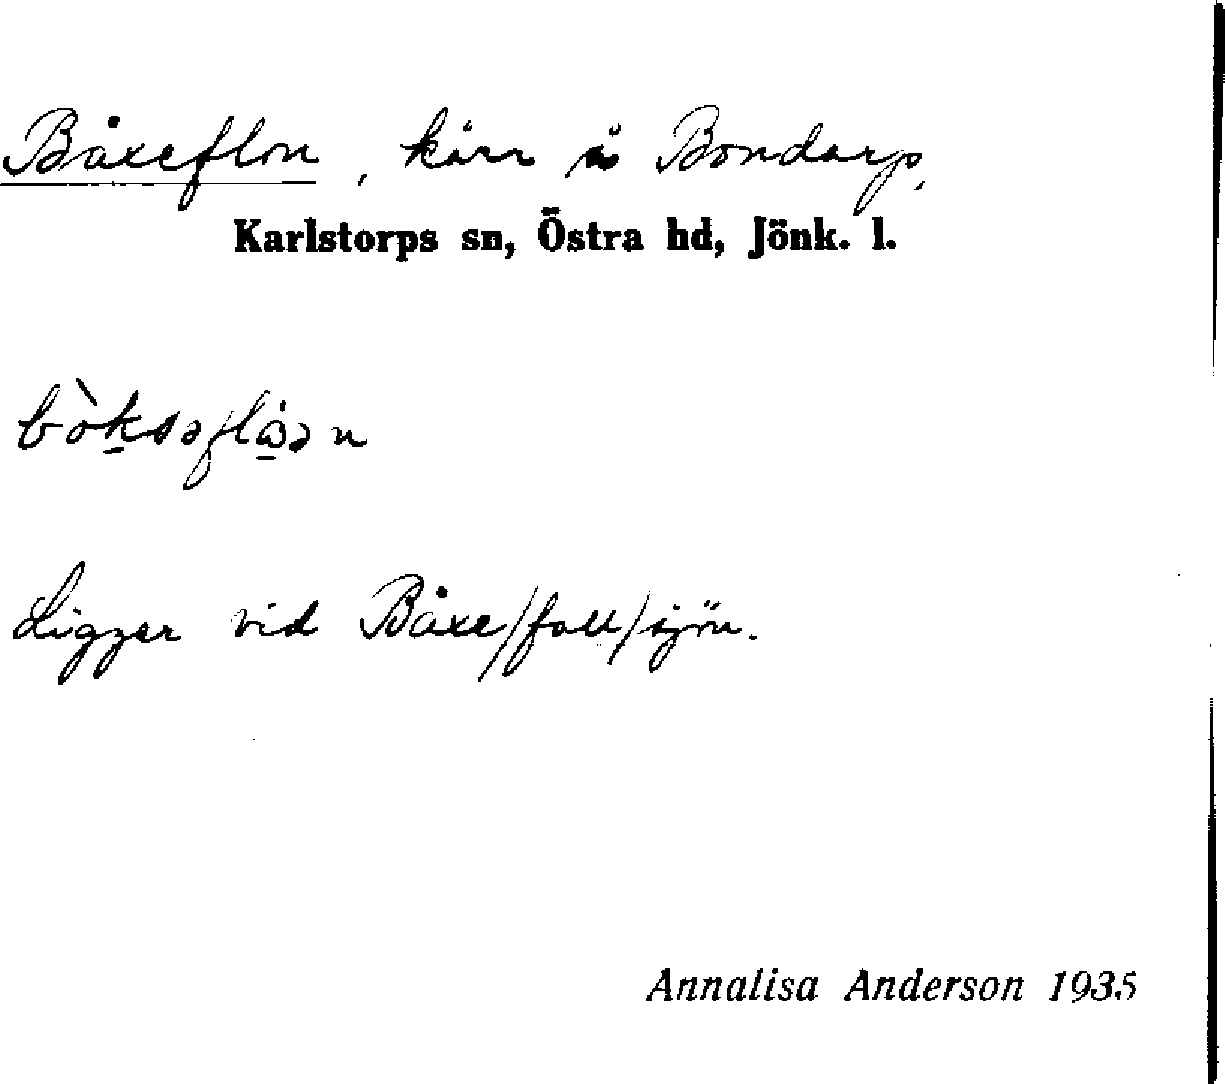 Båxeflon, kärr å Bondarp,
Karlstorps sn, Östra hd, Jönk. l.
Ligger vid Båxe/fall/sjön.
Annalisa Anderson 1935